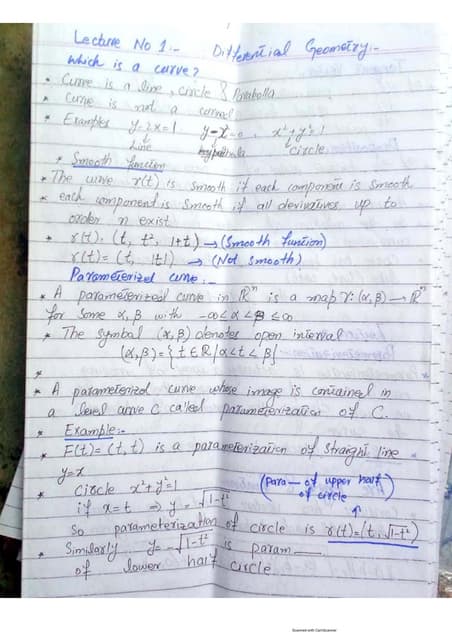 Lecture No 1:- Differential Geometry:-
Which is a curve?
* Curve is a line, circle & Parabolla
* Curve is not a
* Examples y-2x=1 x²+y²=1
Line circle
* Smooth function
* The curve r(t) is smooth if each component is smooth
* each component is smooth if all derivatives up to
order n exist
* r(t) = (t, t², 1+t) → (Smooth function)
r(t) = (t, |t|) → (Not smooth)
Parameterized curve:-
* A parameterized curve in ℝⁿ is a map γ: (α, β) → ℝⁿ
for some α, β with -∞≤α<β≤∞
* The symbol (α, β) denotes open interval
(α, β) = { t ∈ ℝ / α<t<β }
*
* A parameterized curve whose image is contained in
a level curve C called parameterization of C.
* Example:-
* F(t) = (t, t) is a parameterization of straight line
y=x
* Circle x²+y²=1 (para— of upper half
if x=t ⇒ y = √1-t² of circle)
So parameterization of circle is r(t)=(t, √1-t²)
* Similarly, y=-√1-t² is param—
of lower half circle
Scanned with CamScanner